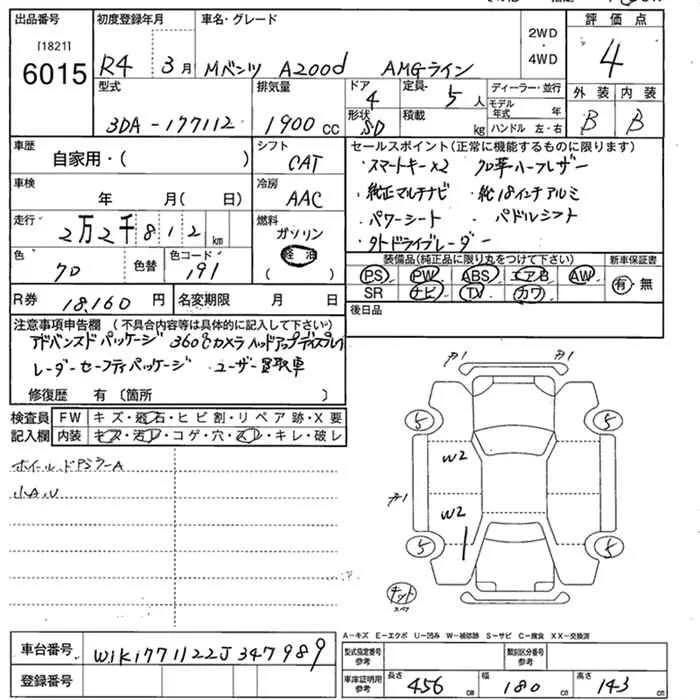 出品番号 初度登録年月 車名・グレード 2WD・4WD 評価点
[1821]
6015 R4 3月 Mベンツ A200d AMGライン 4
型式 排気量 ドア 定員 ディーラー・並行 外装 内装
4 5人 モデル年式 年
3DA-177112 1900cc 形状 SD 積載 kg ハンドル 左・右 B B
車歴 シフト セールスポイント(正常に機能するものに限ります)
自家用・( ) CAT ・スマートキー×2 ・クロ革ハーフレザー
車検 冷房 ・純正マルチナビ ・純18インチアルミ
年 月( 日) AAC ・パワーシート ・パドルシフト
走行 燃料 ・外ドライブレーダー
2万2千812km ガソリン
軽油
( )
色 色替 色コード 装備品(純正品に限り丸をつけて下さい) 新車保証書
クロ 191 PS PW ABS エアB AW 有・無
SR ナビ TV カワ
R券 18,160円 名変期限 月 日 後日品
注意事項申告欄 (不具合内容等は具体的に記入して下さい)
アドバンスドパッケージ 360°カメラ ヘッドアップディスプレイ
レーダーセーフティパッケージ ユーザー買取車
修復歴 有 〔箇所 〕
検査員記入欄 FW キズ・飛石・ヒビ割・リペア跡・X要
内装 キズ・汚レ・コゲ・穴・スレ・キレ・破レ
ホイール
小A,U
A1 A1
5 5
W2
A1
W2
5 5
キット
スペア
A-キズ E-エクボ U-凹み W-補修跡 S-サビ C-腐食 XX-交換済
車台番号 W1K1771122J347989 型式指定番号参考 類別区分番号参考
登録番号 車庫証明用参考 長さ 456cm 幅 180cm 高さ 143cm